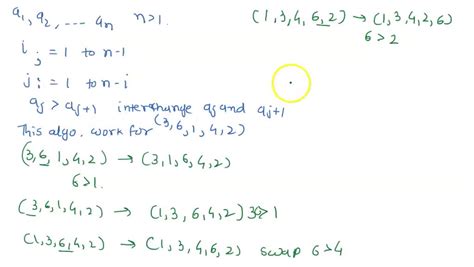 a₁, a₂, ---- aₙ n>1.
i ; = 1 to n-1
j : = 1 to n-i
aj > aj+1 interchange aj and aj+1
This algo. work for (3,6,1,4,2)
(3,6,1,4,2) → (3,1,6,4,2)
6>1.
(3,6,1,4,2) → (1,3,6,4,2) 3>1
(1,3,6,4,2) → (1,3,4,6,2) swap 6>4
(1,3,4,6,2) → (1,3,4,2,6)
6>2